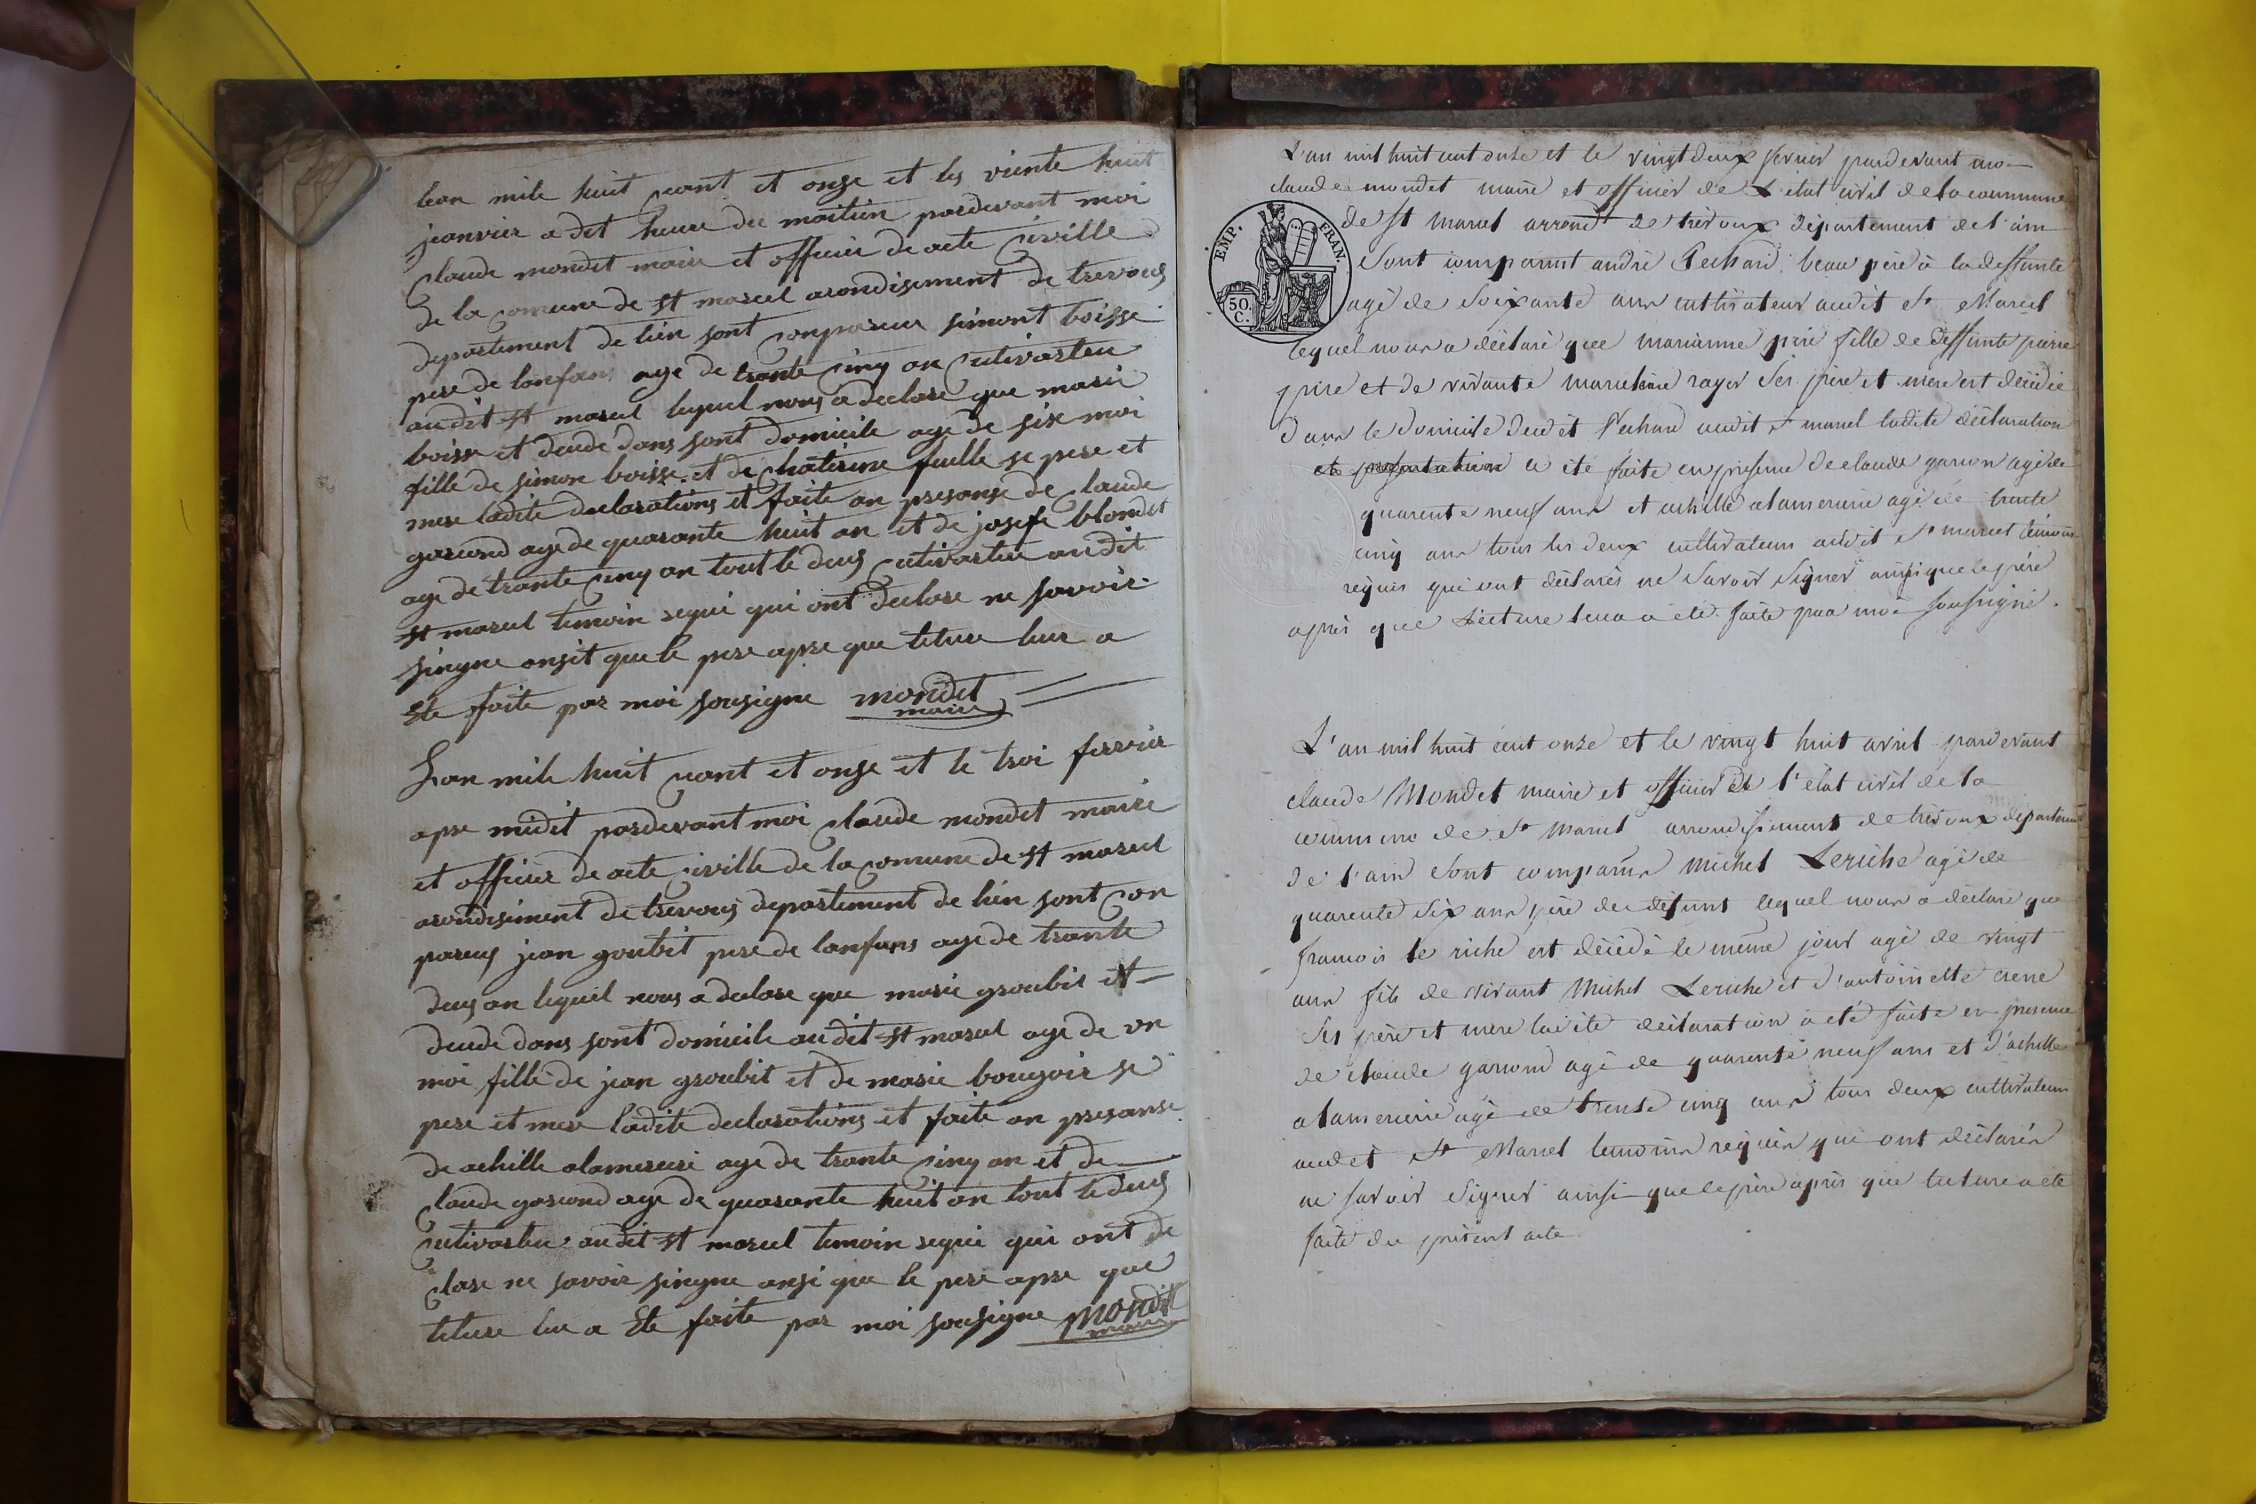 lean mile huit cant et onze et les viente huit
jeanvier a dit heure du maitien pardevant moi
claude mondet maire et officier de acte civille
de la comune de st marcel arondisement de trevous
departement de lien sont conparus simont boisse
pere de lanfans age de trante cinq an cutivasteu
audit st marcel lequel nous a declare que marie
boisse et decede dans sont domicile age de six moi
fille de simon boisse et de chaterine fuelle se pere et
mere ladite declarations et faite an presanse de claude
gascond age de quarante huit an et de josefe blondet
age de trante cinq an tout le deus cutivasteu audit
st marcel temoin requi qui ont declare ne savoir
singne ansit que le pere apre que leture leur a
Ete faite par moi sousigne mondet
maire
Lan mile huit cant et onze et le troi fervrier
apre midit pardevant moi claude mondet maire
et officier de acte civille de la comune de st marcel
arondisement de trevous departement de lien sont con
parus jean groubit pere de lanfans age de trante
deus an lequel nous a declare que marie groubit et
decede dans sont domicile audit st marcel age de un
moi fille de jean groubit et de marie bougoir se
pere et mere ladite declarations et faite an presanse
de achille alamerceri age de trante cinq an et de
claude gascond age de quarante huit an tout le deus
cutivasteu audit st marcel temoin requi qui ont de
clare ne savoir singne ansi que le pere apre que
leture leur a Ete faite par moi sousigne mondet
maire
L'an mil huit cent onze et le vingt deux fevrier pardevant moi
claude mondet maire et officier de L'état civil de la commune
de St Marcel arrondt de trévoux département de l'ain
Sont comparut andré Pechard beau père à la deffunte
EMP. FRAN.
50. C.
agé de Soixante ans cultivateur audit St Marcel
lequel nous a déclaré que marianne pire fille de deffunte pierre
pire et de vivante rayer Ses père et mere est décédée
dans le domicile dudit Pechard audit St marcel ladite déclaration
et presentation a été faite en présence de claude garson agé de
quarente neuf ans et achille alamercerie agé de trente
cinq ans tous les deux cultivateurs audit St marcel témoins
requis qui ont déclarés ne Savoir Signer ainsi que le père
après que Lecture leur a été faite par moi Soussigné.
L'an mil huit cent onze et le vingt huit avril pardevant
claude Mondet maire et officier de l'état civil de la
commune de St Marcel arrondissement de trévoux département
de l'ain Sont comparus Michel Leriche agé de
quarente Six ans père du défunt lequel nous a déclaré que
francois le riche est décédé le même jour agé de vingt
ans fils de vivant Michel Leriche et d'antoinette
Ses père et mere ladite déclaration a été faite en presence
de claude garson agé de quarente neuf ans et d'achille
alamercerie agé de trente cinq ans tous deux cultivateurs
audit St Marcel temoins requis qui ont déclarés
ne Savoir Signer ainsi que le père après que lecture a été
faite du présent acte